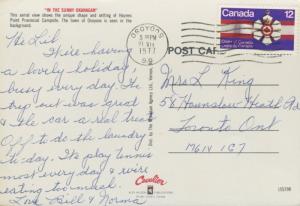 "IN THE SUNNY OKANAGAN"
This aerial view shows the unique shape and setting of Haynes
Point Provincial Campsite. The town of Osoyoos is seen in the
background.
OSOYOOS
PM
1977
B.C.
Canada 12
POST CAR
Hi Lil,
We're having
a lovely holiday
busy every day. The
trip out was great
& the car a real treat
Off to do the laundry
to-day. We play tennis
most every day & we're
eating too much.
Love Bill & Norma
Mrs L King
58 Hounslow Heath Rd
Toronto Ont
M6N 1G7
Cavalier